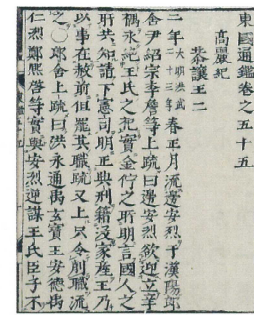 東國通鑑卷之五十五
高麗紀
恭讓王二
二年大明洪武二十三年春正月流邊安烈于漢陽郎
舍尹紹宗李詹等上疏曰邊安烈欲迎立辛
禑永絶王氏之祀實金佇之所明言國人之
所共知請下憲司明正典刑籍没家產王乃
以事在赦前但罷其職疏又上只令削職流
之〇郎舍上疏曰洪永通禹玄寶王安德禹
仁烈鄭熙啓等實與安烈逆謀王氏臣子不